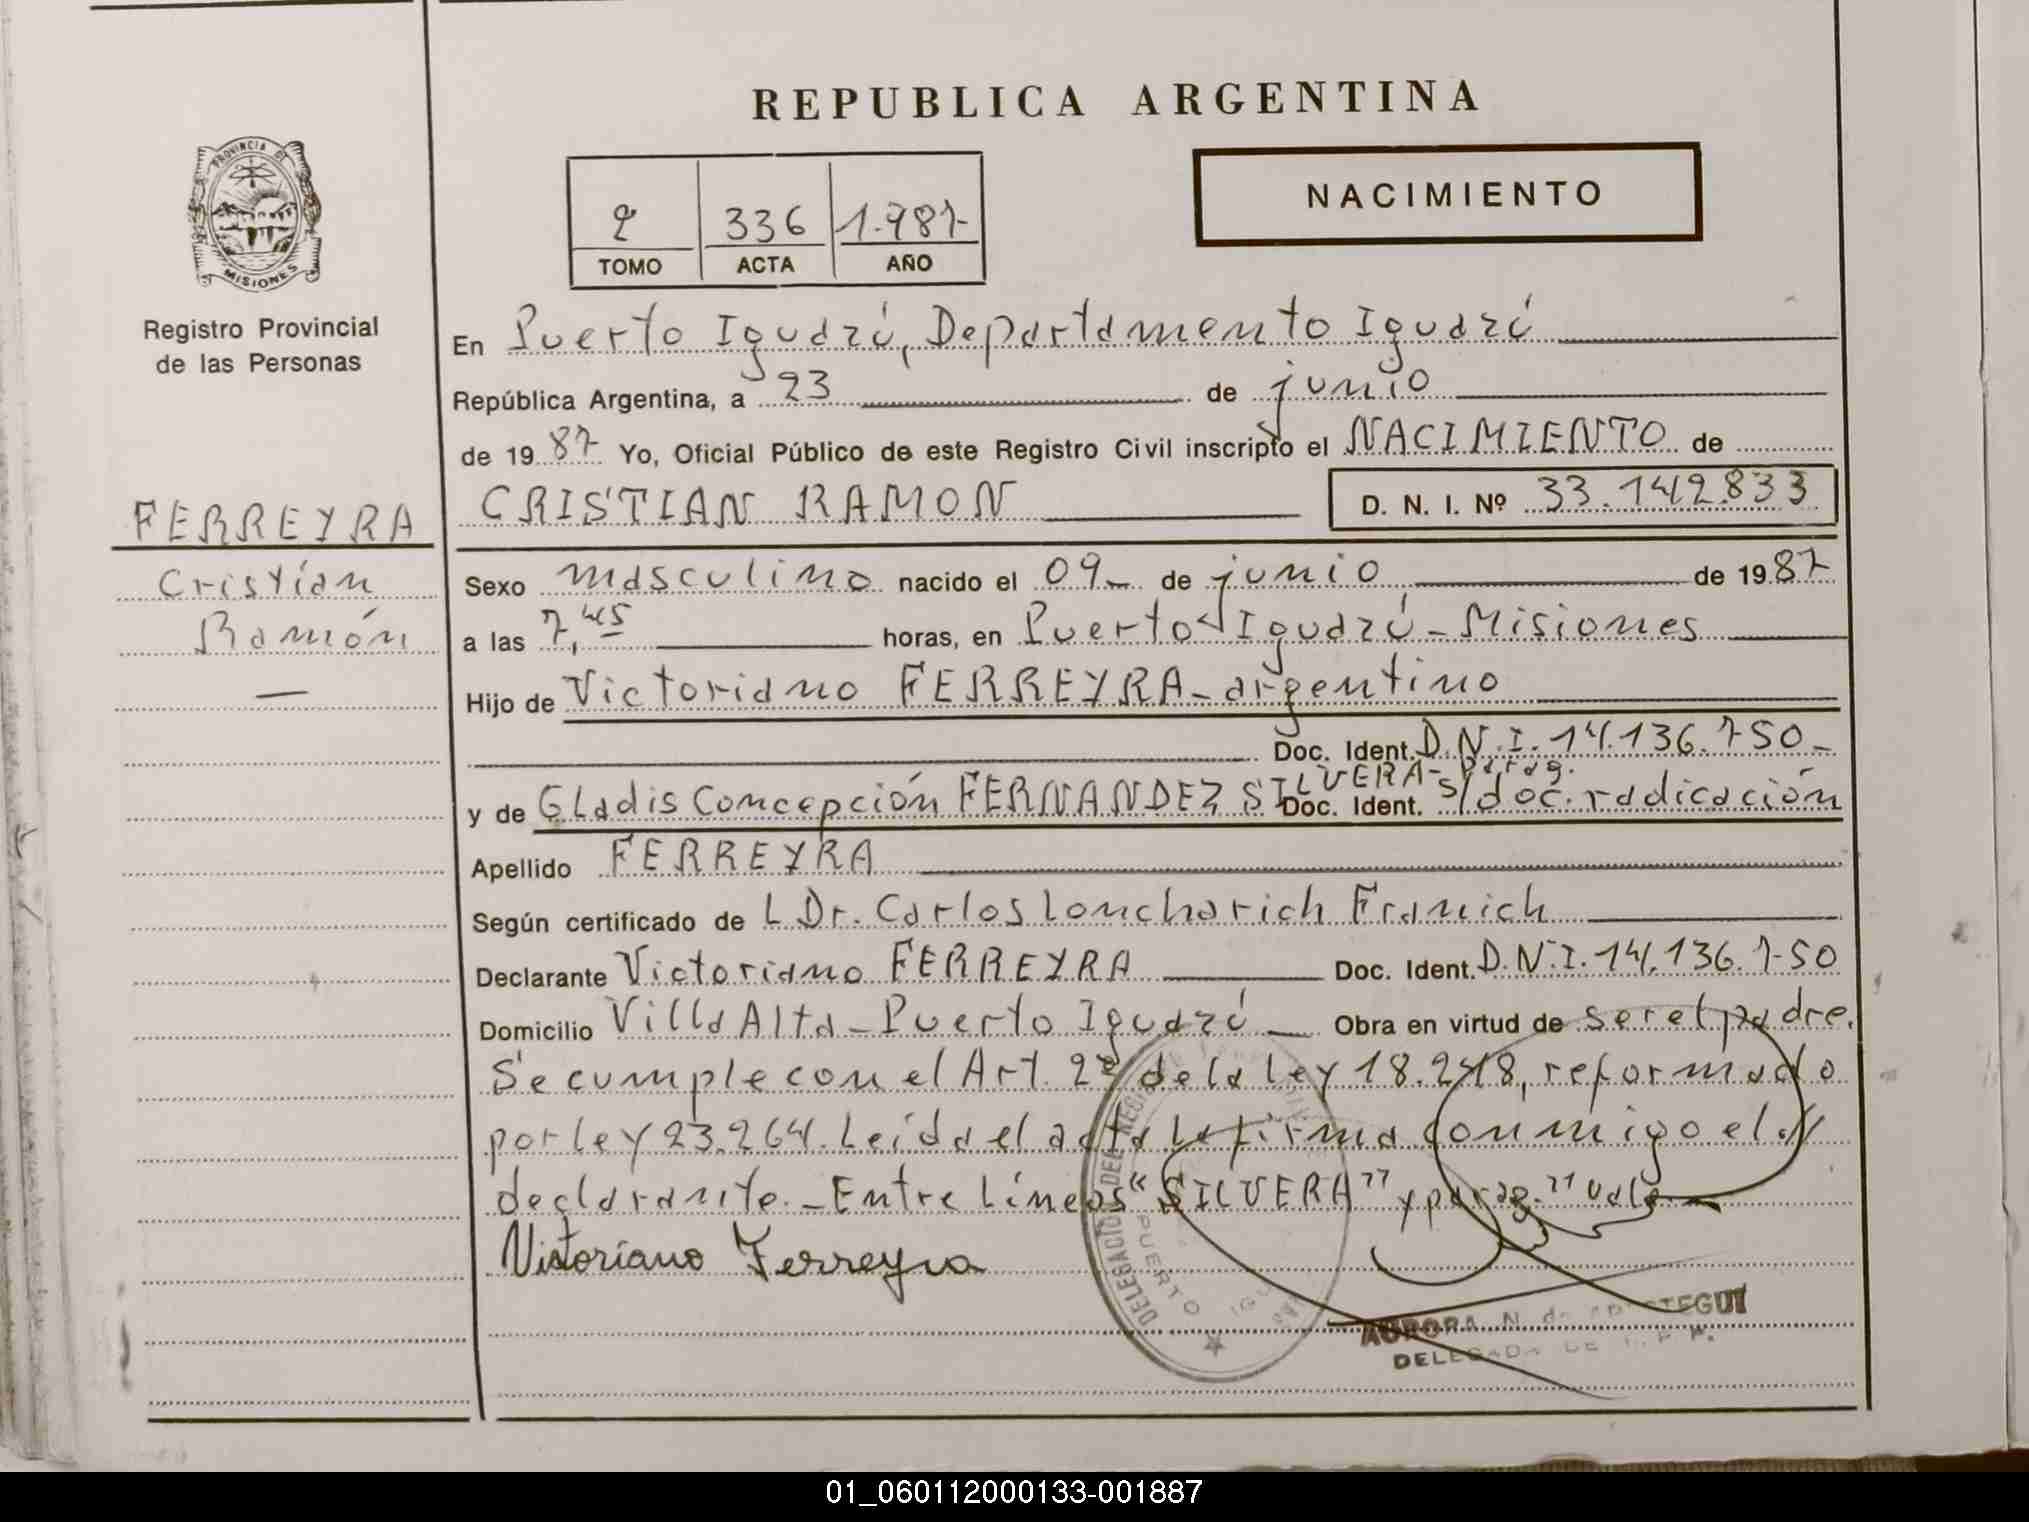 REPUBLICA ARGENTINA
PROVINCIA DE
MISIONES
Registro Provincial
de las Personas
2 336 1.987-
TOMO ACTA AÑO
NACIMIENTO
En Puerto Iguazú, Departamento Iguazú
República Argentina, a 23 de junio
de 1987 Yo, Oficial Público de este Registro Civil inscripto el NACIMIENTO de
CRISTIAN RAMON D. N. I. Nº 33.142.833
FERREYRA
Cristían
Ramón
—
Sexo masculino nacido el 09- de junio de 1987
a las 7,45 horas, en Puerto Iguazú - Misiones
Hijo de Victoriano FERREYRA - argentino
Doc. Ident. D.N.I. 14.136.750-
y de Gladis Concepción FERNANDEZ SILVERA- parag. Doc. Ident. s/doc. radicación
Apellido FERREYRA
Según certificado de L Dr. Carlos Loncharich Franich
Declarante Victoriano FERREYRA Doc. Ident. D.N.I. 14.136.750
Domicilio Villa Alta - Puerto Iguazú Obra en virtud de ser el padre.
Se cumple con el Art. 2º de la Ley 18.248, reformado
por ley 23.264. Leída el acta la firma conmigo el //
declarante.- Entre Líneas "SILVERA" y parag." vale
Victoriano Ferreyra
DELEGACIÓN DEL REGISTRO
PUERTO IGUAZÚ
AURORA N. de AROSTEGUI
DELEGADA DE
01_060112000133-001887